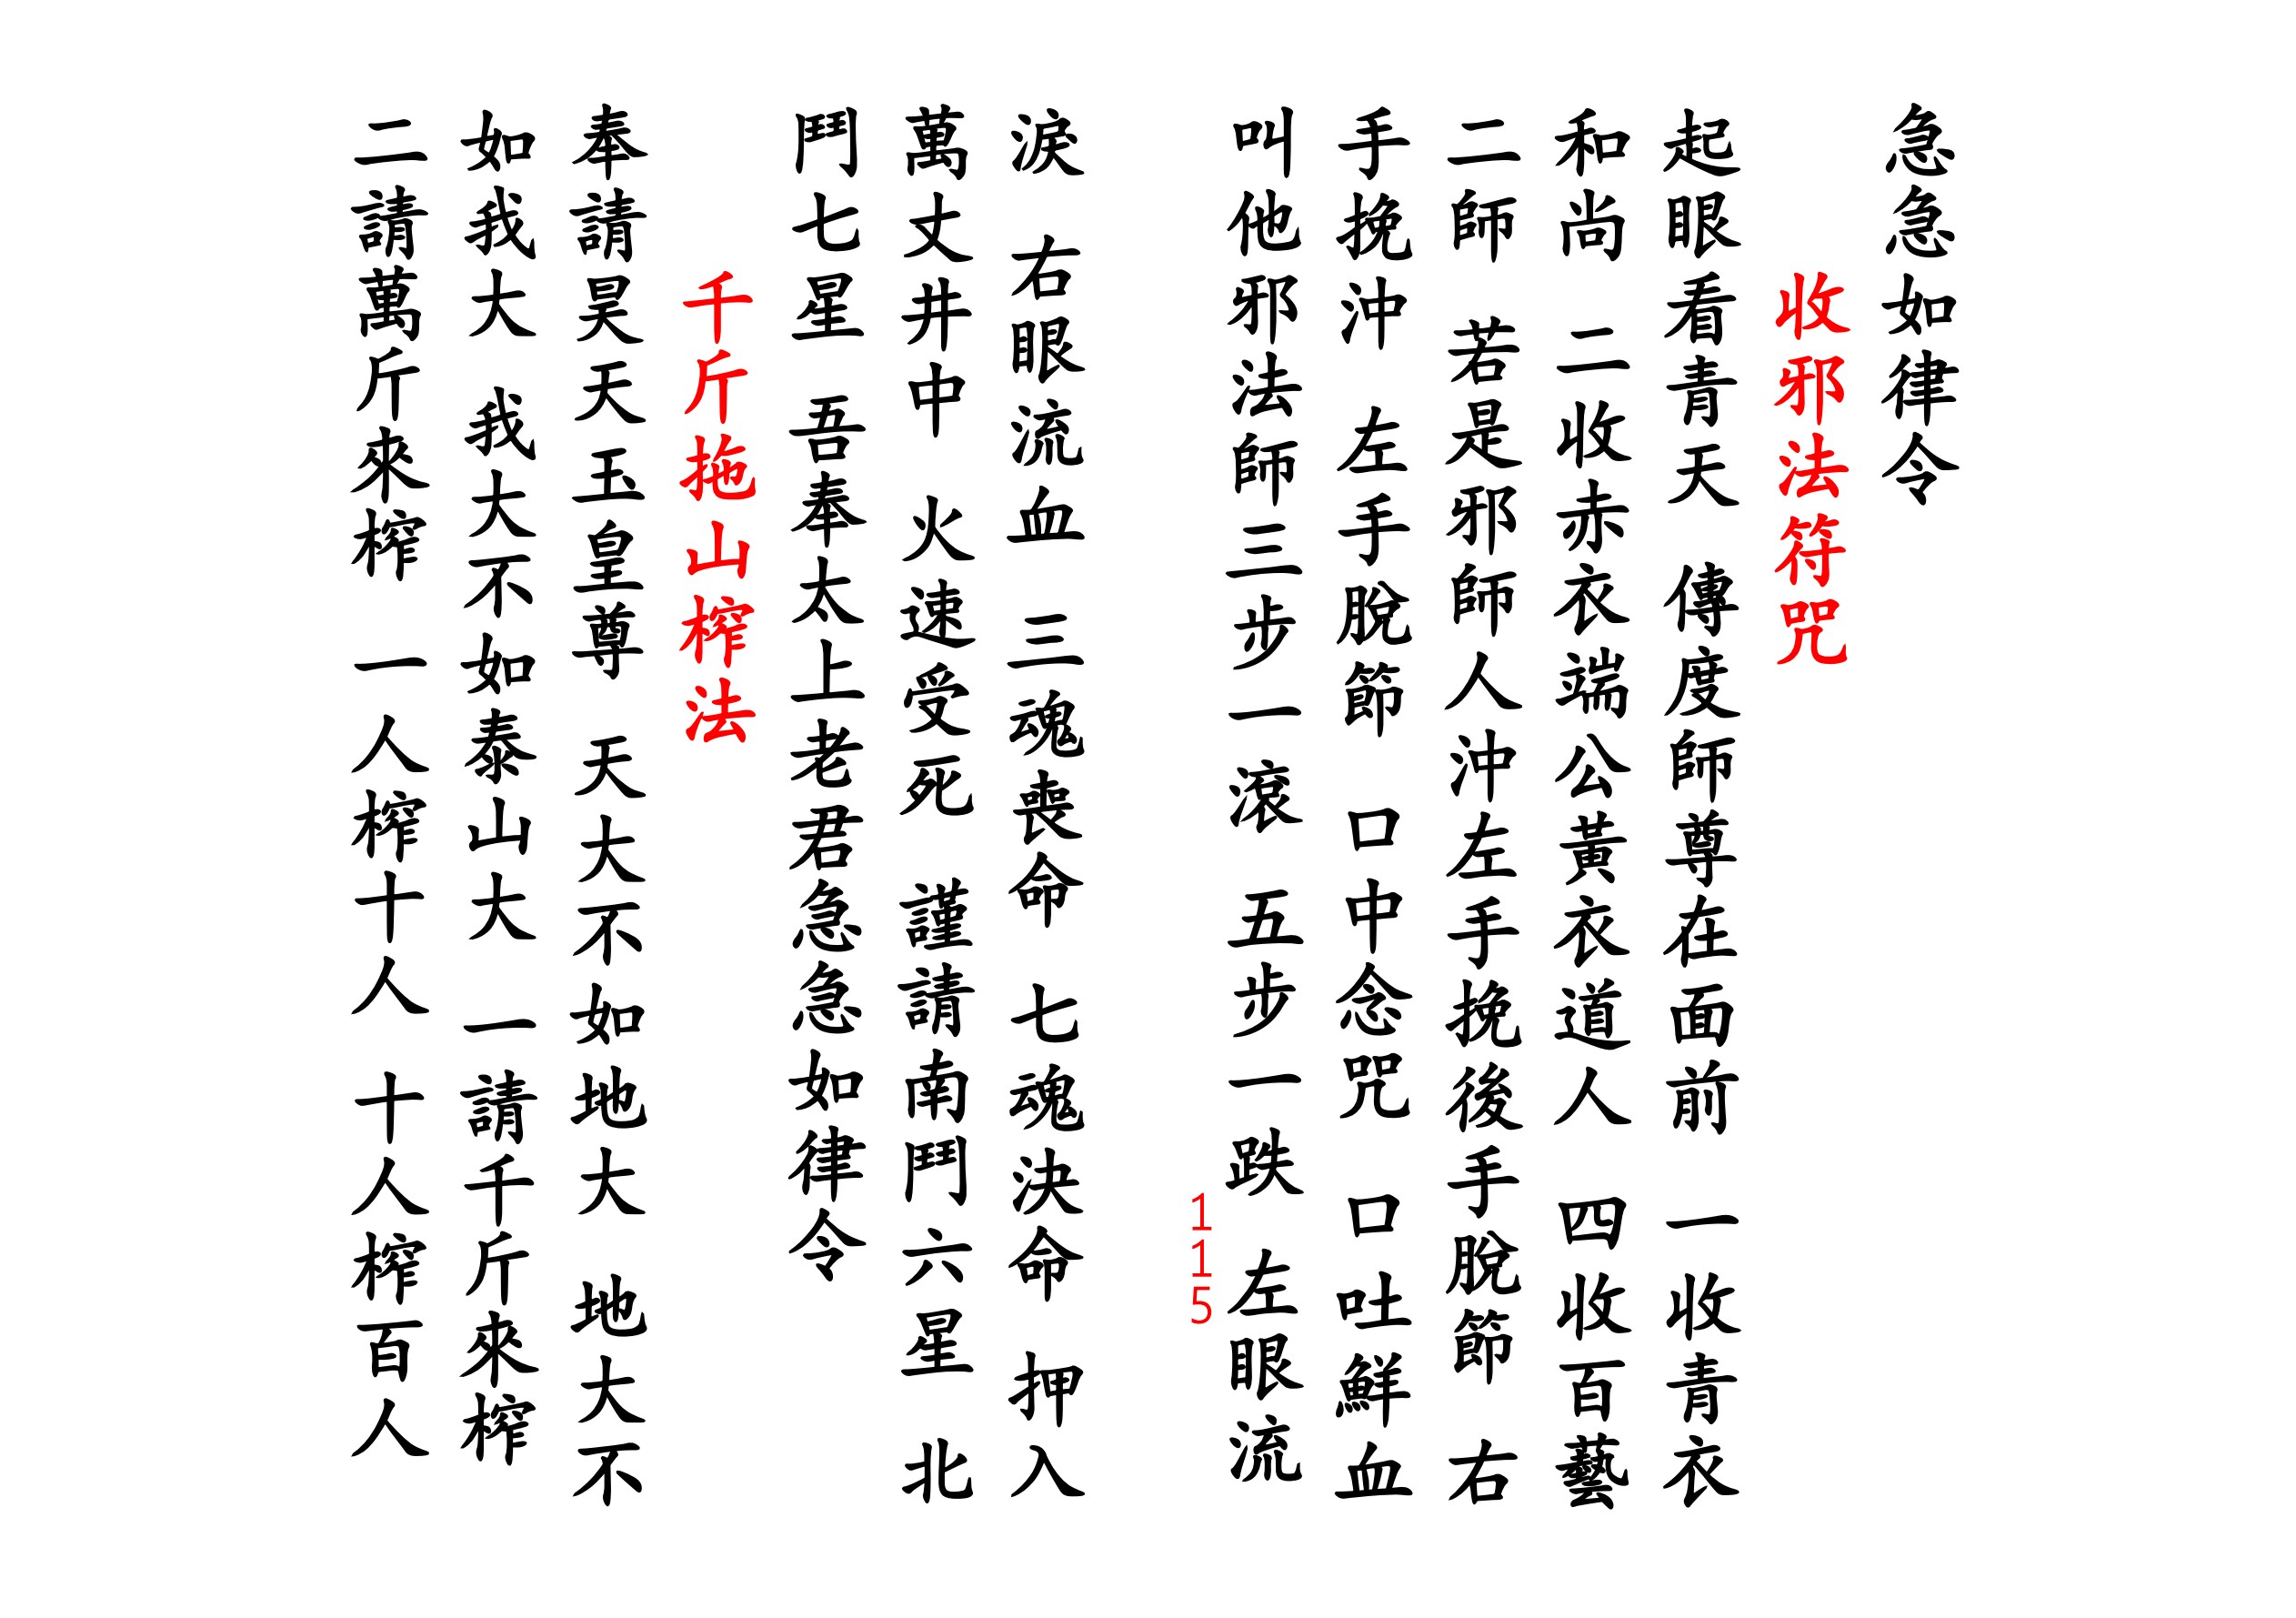 急急如律令
收邪法符咒
起眼看青天 傳度師尊在面前 一收青衣
和尚 二收赤衣端公黃衣道人 四收百藝
二師 若是邪師人沖左手挽後手脫節 右
手挽沖 左手脫節 口中念咒 口吐鮮血
叫他邪法師三步一滾 五步一跌 左眼流
淚 右眼流血 三魂喪命 七魂決命 押入
萬丈井中 火速受死 謹請南鬥六星 北
鬥七星 吾奉太上老君急急如律令
千斤拖山榨法
奉請昊天玉皇尊 天大不如地大 地大不
如我大 我大不如泰山大 一請千斤來榨
二請萬斤來榨 一人榨十人 十人榨百人
115